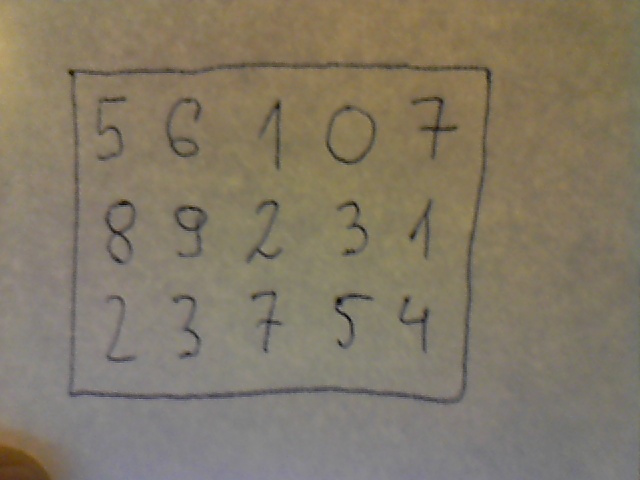 5 6 1 0 7
8 9 2 3 1
2 3 7 5 4